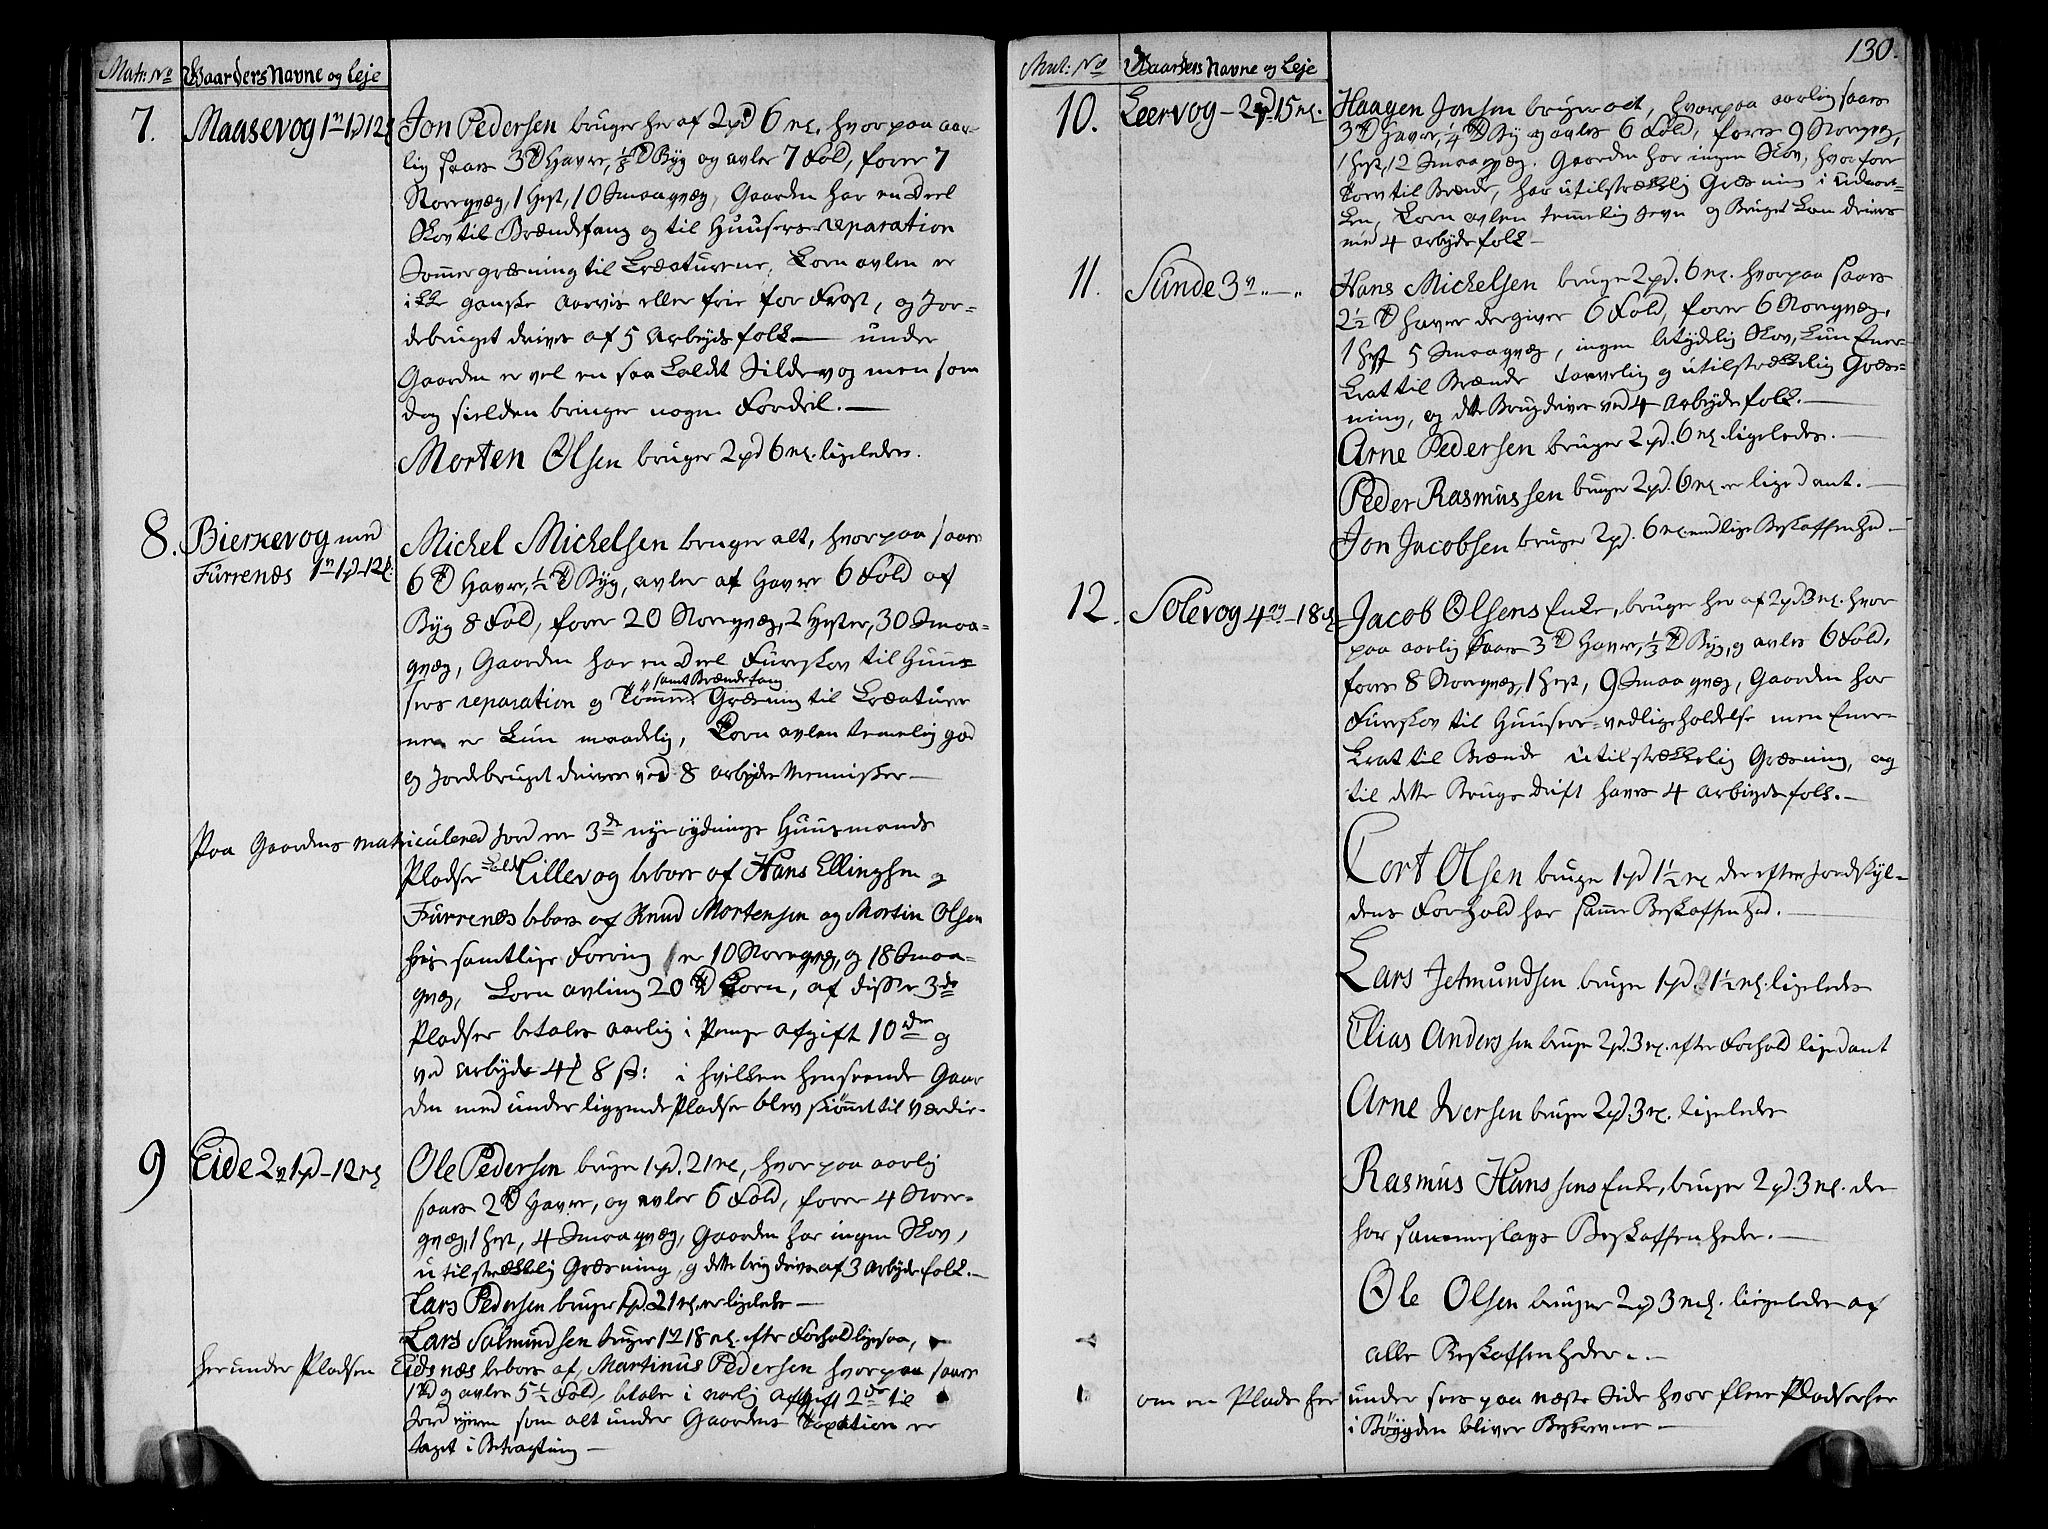 Matr: No Gaarders Navne og Leje
7. Maasevog 1 1 12 Jon Pedersen bruger her af 2 pd 6 mk. hvorpaa aar-
lig saaes 3 Td Havre, 1/8 Td Byg og avler 7 Fold, forer 7
Storeqvæg, 1 Hest, 10 Smaaqvæg, Gaarden har en Deel
Skov til Brændefang og til Huusers reparation
Sommergræsning til Creaturene, Korn avlen er
ikke ganske aarvis eller frie for Frost, og Jor-
debruget drives af 5 Arbejdsfolk — under
Gaarden er vel en saa kaldt Silde vog men som
dog sielden bringer nogen Fordeel. —
Morten Olsen bruger 2 pd 6 mk. ligeledes.
8. Bierkevog med Michel Michelsen bruger alt, hvorpaa saaes
Furrenæs 1 1 12 6 Td Havre, 1/2 Td Byg, avler af Havre 6 Fold af
Byg 8 Fold, forer 20 Storeqvæg, 2 Hester, 30 Smaa-
qvæg, Gaarden har en Deel Fureskov til Huu-
sers reparation og Tømmer samt Brændefang Græsning til Creature
ne er kun maadelig, Korn avlen temelig god
og Jordebruget drives ved 8 arbejds Mennisker —
Paa Gaardens matriculered Jord ere 3de nye rydnings Huusmands
Pladser kaldt Lillevog beboes af Hans Ellingsen og
Furrenæs beboes af Knud Mortensen og Morten Olsen
samtlige Foring er 10 Storeqvæg, og 18 Smaa-
qvæg, Korn avling 20 Td Korn, af disse 3de
Pladser betales aarlig i Penge afgift 10 og
ved arbejde 4 8 s: i hvilken henseende Gaar
den med underliggende Pladser blev skiønnet til værdie.
9 Eide 2 1 pd - 12 mk Ole Pedersen bruger 1 pd. 21 mk, hvorpaa aarlig
saaes 2 Td Havre, og avler 6 Fold, forer 4 Store-
qvæg, 1 Hest, 4 Smaaqvæg, Gaarden har ingen Skov,
utilstrækkelig Græsning, og dette brug drives af 3 Arbejdsfolk. —
Lars Pedersen bruger 1 pd. 21 mk. er ligeledes —
Lars Salmundsen bruger 1 18 mk. efter Forhold ligesaa,
herunder Pladsen Eidsnæs beboes af Martinus Pedersen hvorpaa saaes
1 Td og avles 5 1/2 Fold, betaler i aarlig afgift 2 til
Jord ejeren som alt under Gaardens Taxation er
taget i Betragtning —
130.
Mat: No Gaarders Navne og Leje
10. Leervog - 2 pd 15 mk. Haagen Jonsen bruger alt, hvorpaa aarlig saaes
3 Td Havre, 1/4 Td Byg og avles 6 Fold, fores 9 Storeqvæg,
1 Hest, 12 Smaaqvæg. Gaarden har ingen Skov, hvorfore
Torv til Brænde, har utilstrækkelig Græsning i Udmar-
ken, Korn avlen temmelig jevn og Bruget kan drives
med 4 arbejdsfolk —
11. Sunde 3 Hans Michelsen bruger 2 pd. 6 mk. hvorpaa saaes
2 1/2 Td Havre der giver 6 Fold, forer 6 Storeqvæg,
1 Hest 5 Smaaqvæg, ingen betydelig Skov, kun Ener-
krat til Brænde tarvelig og utilstrækkelig Græs-
ning, og dette Brug drives ved 4 Arbejdsfolk. —
Arne Pedersen bruger 2 pd. 6 mk. ligeledes. —
Peder Rasmussen bruger 2 pd. 6 mk er ligedant. —
Jon Jacobsen bruger 2 pd. 6 mk. med lige Beskaffenhed —
12. Solevog 4 - 18 Jacob Olsens Enke, bruger her af 2 pd 3 mk. hvor
paa aarlig saaes 3 Td Havre, 1/3 Td Byg, og avles 6 Fold,
fores 8 Storeqvæg, 1 Hest, 9 Smaaqvæg, Gaarden har
Fureskov til Huusers vedligeholdelse men Ener-
krat til Brænde utilstrækkelig Græsning, og
til dette Brugs Drift haves 4 arbejdsfolk. —
Cort Olsen bruger 1 pd 1 1/2 mk der efter Jordskyl-
dens Forhold har samme Beskaffenhed. —
Lars Jetmundsen bruger 1 pd. 1 1/2 mk. ligeledes
Elias Anderssen bruger 2 pd. 3 mk. efter Forhold ligedant
Arne Iversen bruger 2 pd. 3 mk. ligeledes
Rasmus Hanssens Enke, bruger 2 pd. 3 mk. der
har sammeslags Beskaffenheder. —
Ole Olsen bruger 2 pd 3 mk. ligeledes af
alle Beskaffenheder. —
om en Plads her under sees paa næste Side hvor flere Pladser her
i Bøygden bliver Beskrevne —